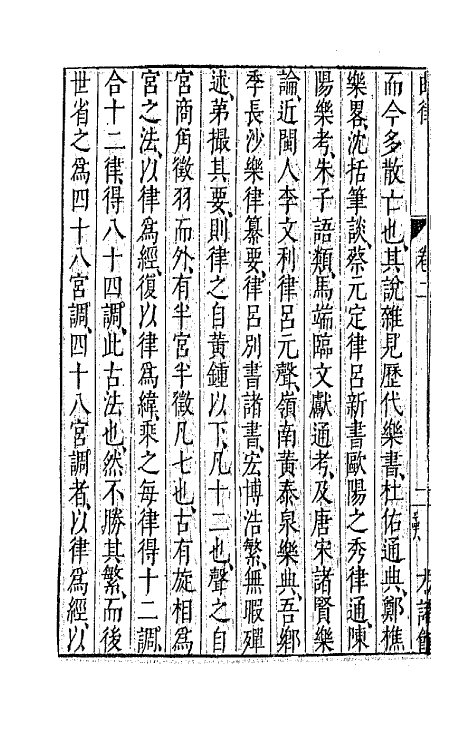 曲律 卷二
而今多散亡也、其說雜見歷代樂書、杜佑通典、鄭樵
樂畧、沈括筆談、蔡元定律呂新書、歐陽之秀律通、陳
陽樂考、朱子語類、馬端臨文獻通考、及唐宋諸賢樂
論、近閩人李文利律呂元聲、嶺南黃泰泉樂典、吾鄉
季長沙樂律纂要、律呂別書諸書、宏博浩繁、無暇殫
述、第撮其要、則律之自黃鍾以下、凡十二也、聲之自
宮商角徵羽而外、有半宮半徵凡七也、古有旋相爲
宮之法、以律爲經、復以律爲緯、乘之每律得十二調、
合十二律、得八十四調、此古法也、然不勝其繁、而後
世省之爲四十八宮調、四十八宮調者、以律爲經、以